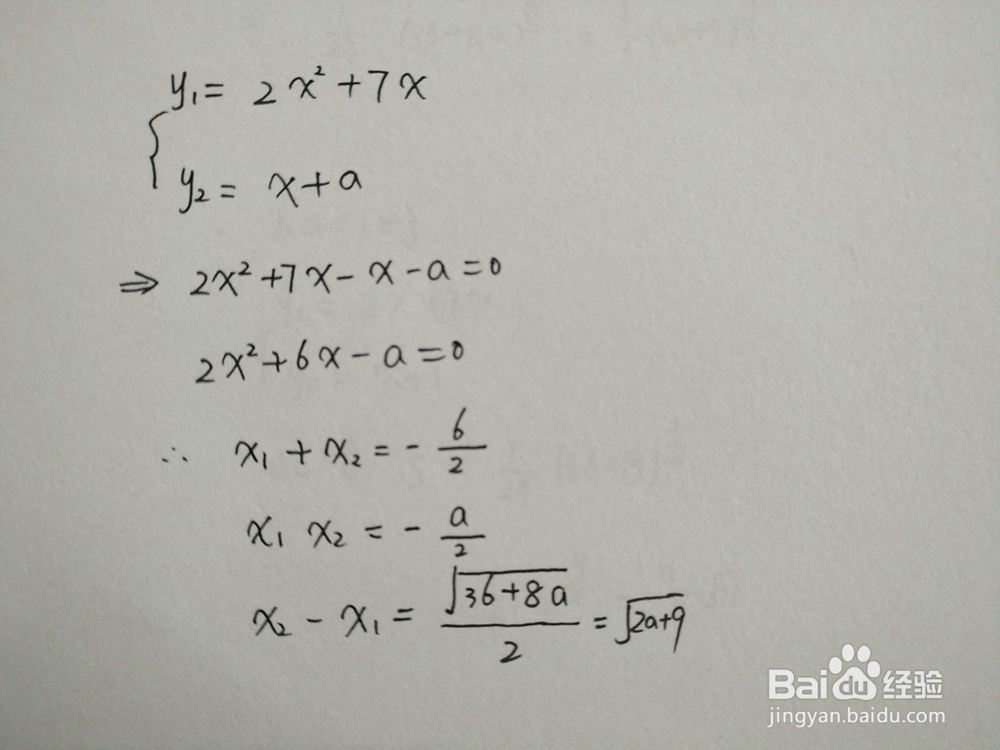 y₁ = 2x² + 7x
y₂ = x + a
⇒ 2x² + 7x - x - a = 0
2x² + 6x - a = 0
∴ x₁ + x₂ = - 6/2
x₁ x₂ = - a/2
x₂ - x₁ = √(36+8a)/2 = √(2a+9)
Baidu 经验
jingyan.baidu.com